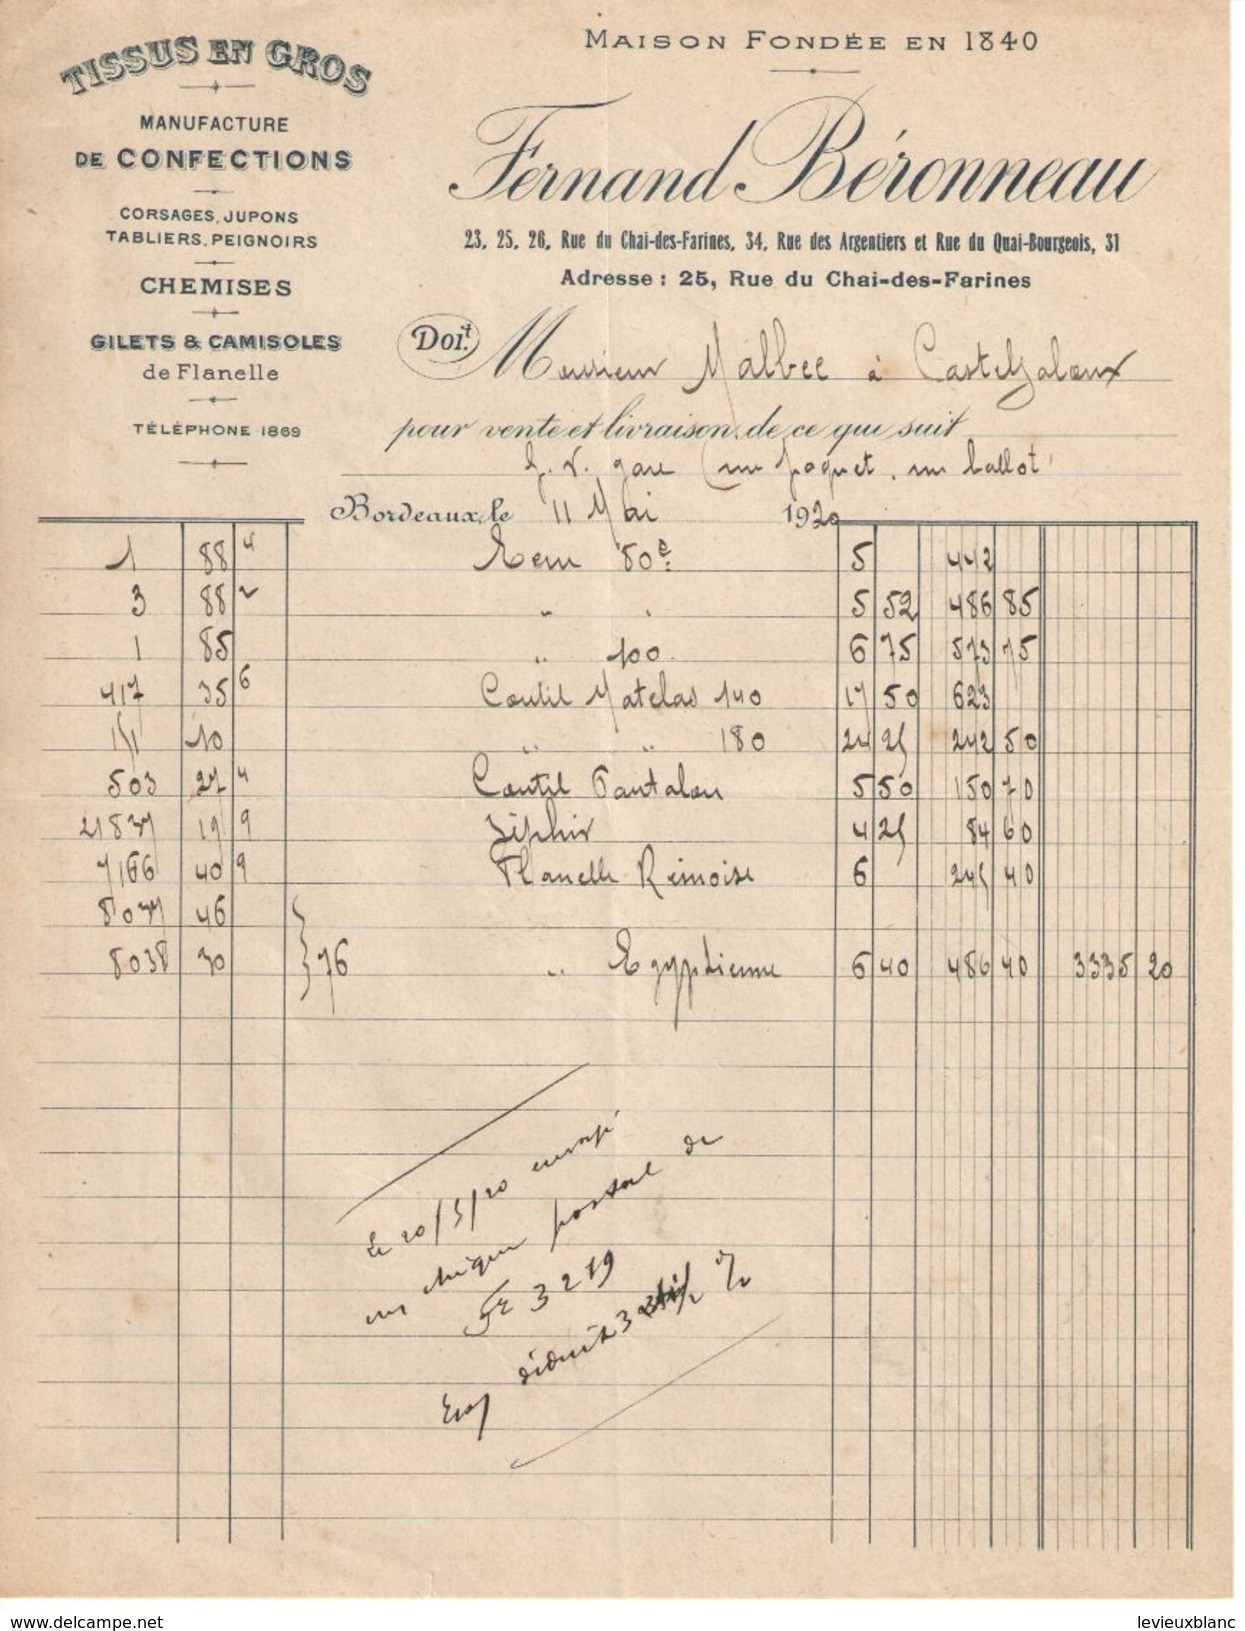 TISSUS EN GROS
MANUFACTURE
DE CONFECTIONS
CORSAGES, JUPONS
TABLIERS, PEIGNOIRS
CHEMISES
GILETS & CAMISOLES
de Flanelle
TÉLÉPHONE 1869
MAISON FONDÉE EN 1840
Fernand Béronneau
23, 25, 26, Rue du Chai-des-Farines, 34, Rue des Argentiers et Rue du Quai-Bourgeois, 31
Adresse : 25, Rue du Chai-des-Farines
Doit. Monsieur Malbec à Casteljaloux
pour vente et livraison de ce qui suit
G. V. gare (un paquet, un ballot)
Bordeaux, le 11 Mai 1920
1 88 4 80 5 442
3 88 2 " " 5 52 486 85
1 85 " 100 6 75 573 75
417 35 6 Coutil Matelas 140 17 50 623
10 " " 180 24 25 242 50
503 27 4 Coutil Pantalon 5 50 150 70
21837 19 9 Zéphir 4 25 84 60
7166 40 9 Flanelle Rémoise 6 245 40
8037 46
8038 30 } 76 " Egyptienne 6 40 486 40 3335 20
le 20/5/20 envoyé
un chèque postal de
3219
déduit 3 %
levieuxblanc
www.delcampe.net